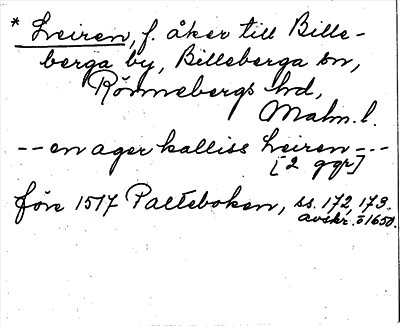 * Leiren, f. åker till Bille-
berga by, Billeberga sn,
Rönnebergs hd,
Malm. l.
-- en ager kalliss Leiren --
[2 ggr]
före 1517 Palteboken, ss. 172, 173.
avskr. o 1650.